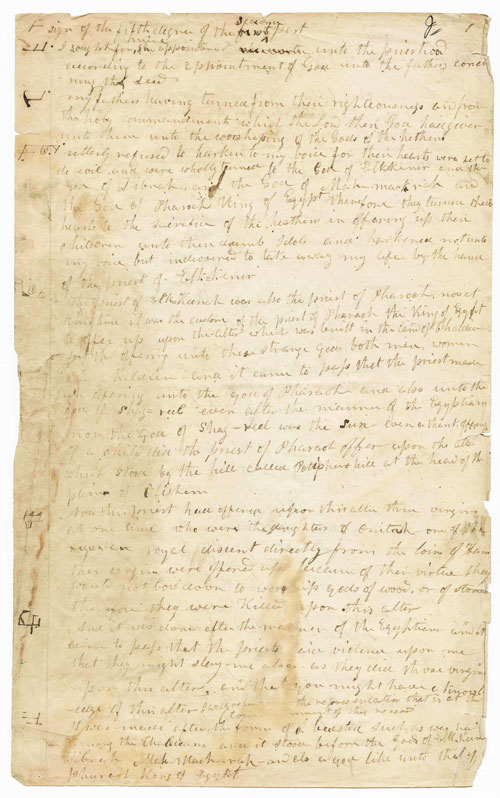 sign of the fifth degree of the second part
I sought for mine appointment unto the priesthood
according to the appointment of God unto the fathers concer
ning the seed
my fathers having turned from their righteousness and from
the holy commandments which the Lord their God had given
unto them unto the worshiping of the Gods of the hethens
utterly refused to harken to my voice for their hearts were set to
do evil and were wholly turned to the God of Elkkener and the
God of Libnah and the God of Mah-mackrah and
the God of Pharoah King of Egypt Therefore they turned their
hearts to the sacrifice of the heathens in offering up their
children unto their dumb Idols and harkened not unto
my voice but indeovered to take away my life by the hand
of the priest of Elkkener
The priest of Elkkener was also the priest of Pharoah, now at
this time it was the custom of the priest of Pharaoh the King of Egypt
to offer up upon the alter which was built in the land of Chaldea
for the offering unto these strange Gods both men, women
and children and it came to pass that the priest made
an offering unto the god of Pharaoh and also unto the
god of Shag-reel even after the manner of the Egyptians
now the God of Shag-reel was the Sun even a thank offering
of a child did the priest of Pharaoh offer upon the alter
which stood by the hill called Potiphers hill at the head of the
plain of Olishem
Now this priest had offered upon this alter three virgins
at one time who were the daughters of Onitah one of the
royal discent directly from the loins of Ham
these virgins were offered up because of their virtue they
would not bow down to worship gods of wood, or of stone
therefore they were killed upon this alter
and it was done after the manner of the Egyptians and it
came to pass that the priests laid violence upon me
that they might slay me also, as they did those virgins
upon this alter, and that you might have a knowl
edge of this alter I will refer you to the representation that is at the
commencement of this record
It was made after the form of a bedsted such as was had
among the Chaldeans and it stood before the Gods of Elkkener
Libnah Mah-mach-rah and also a god like unto that of
Pharaoh King of Egypt